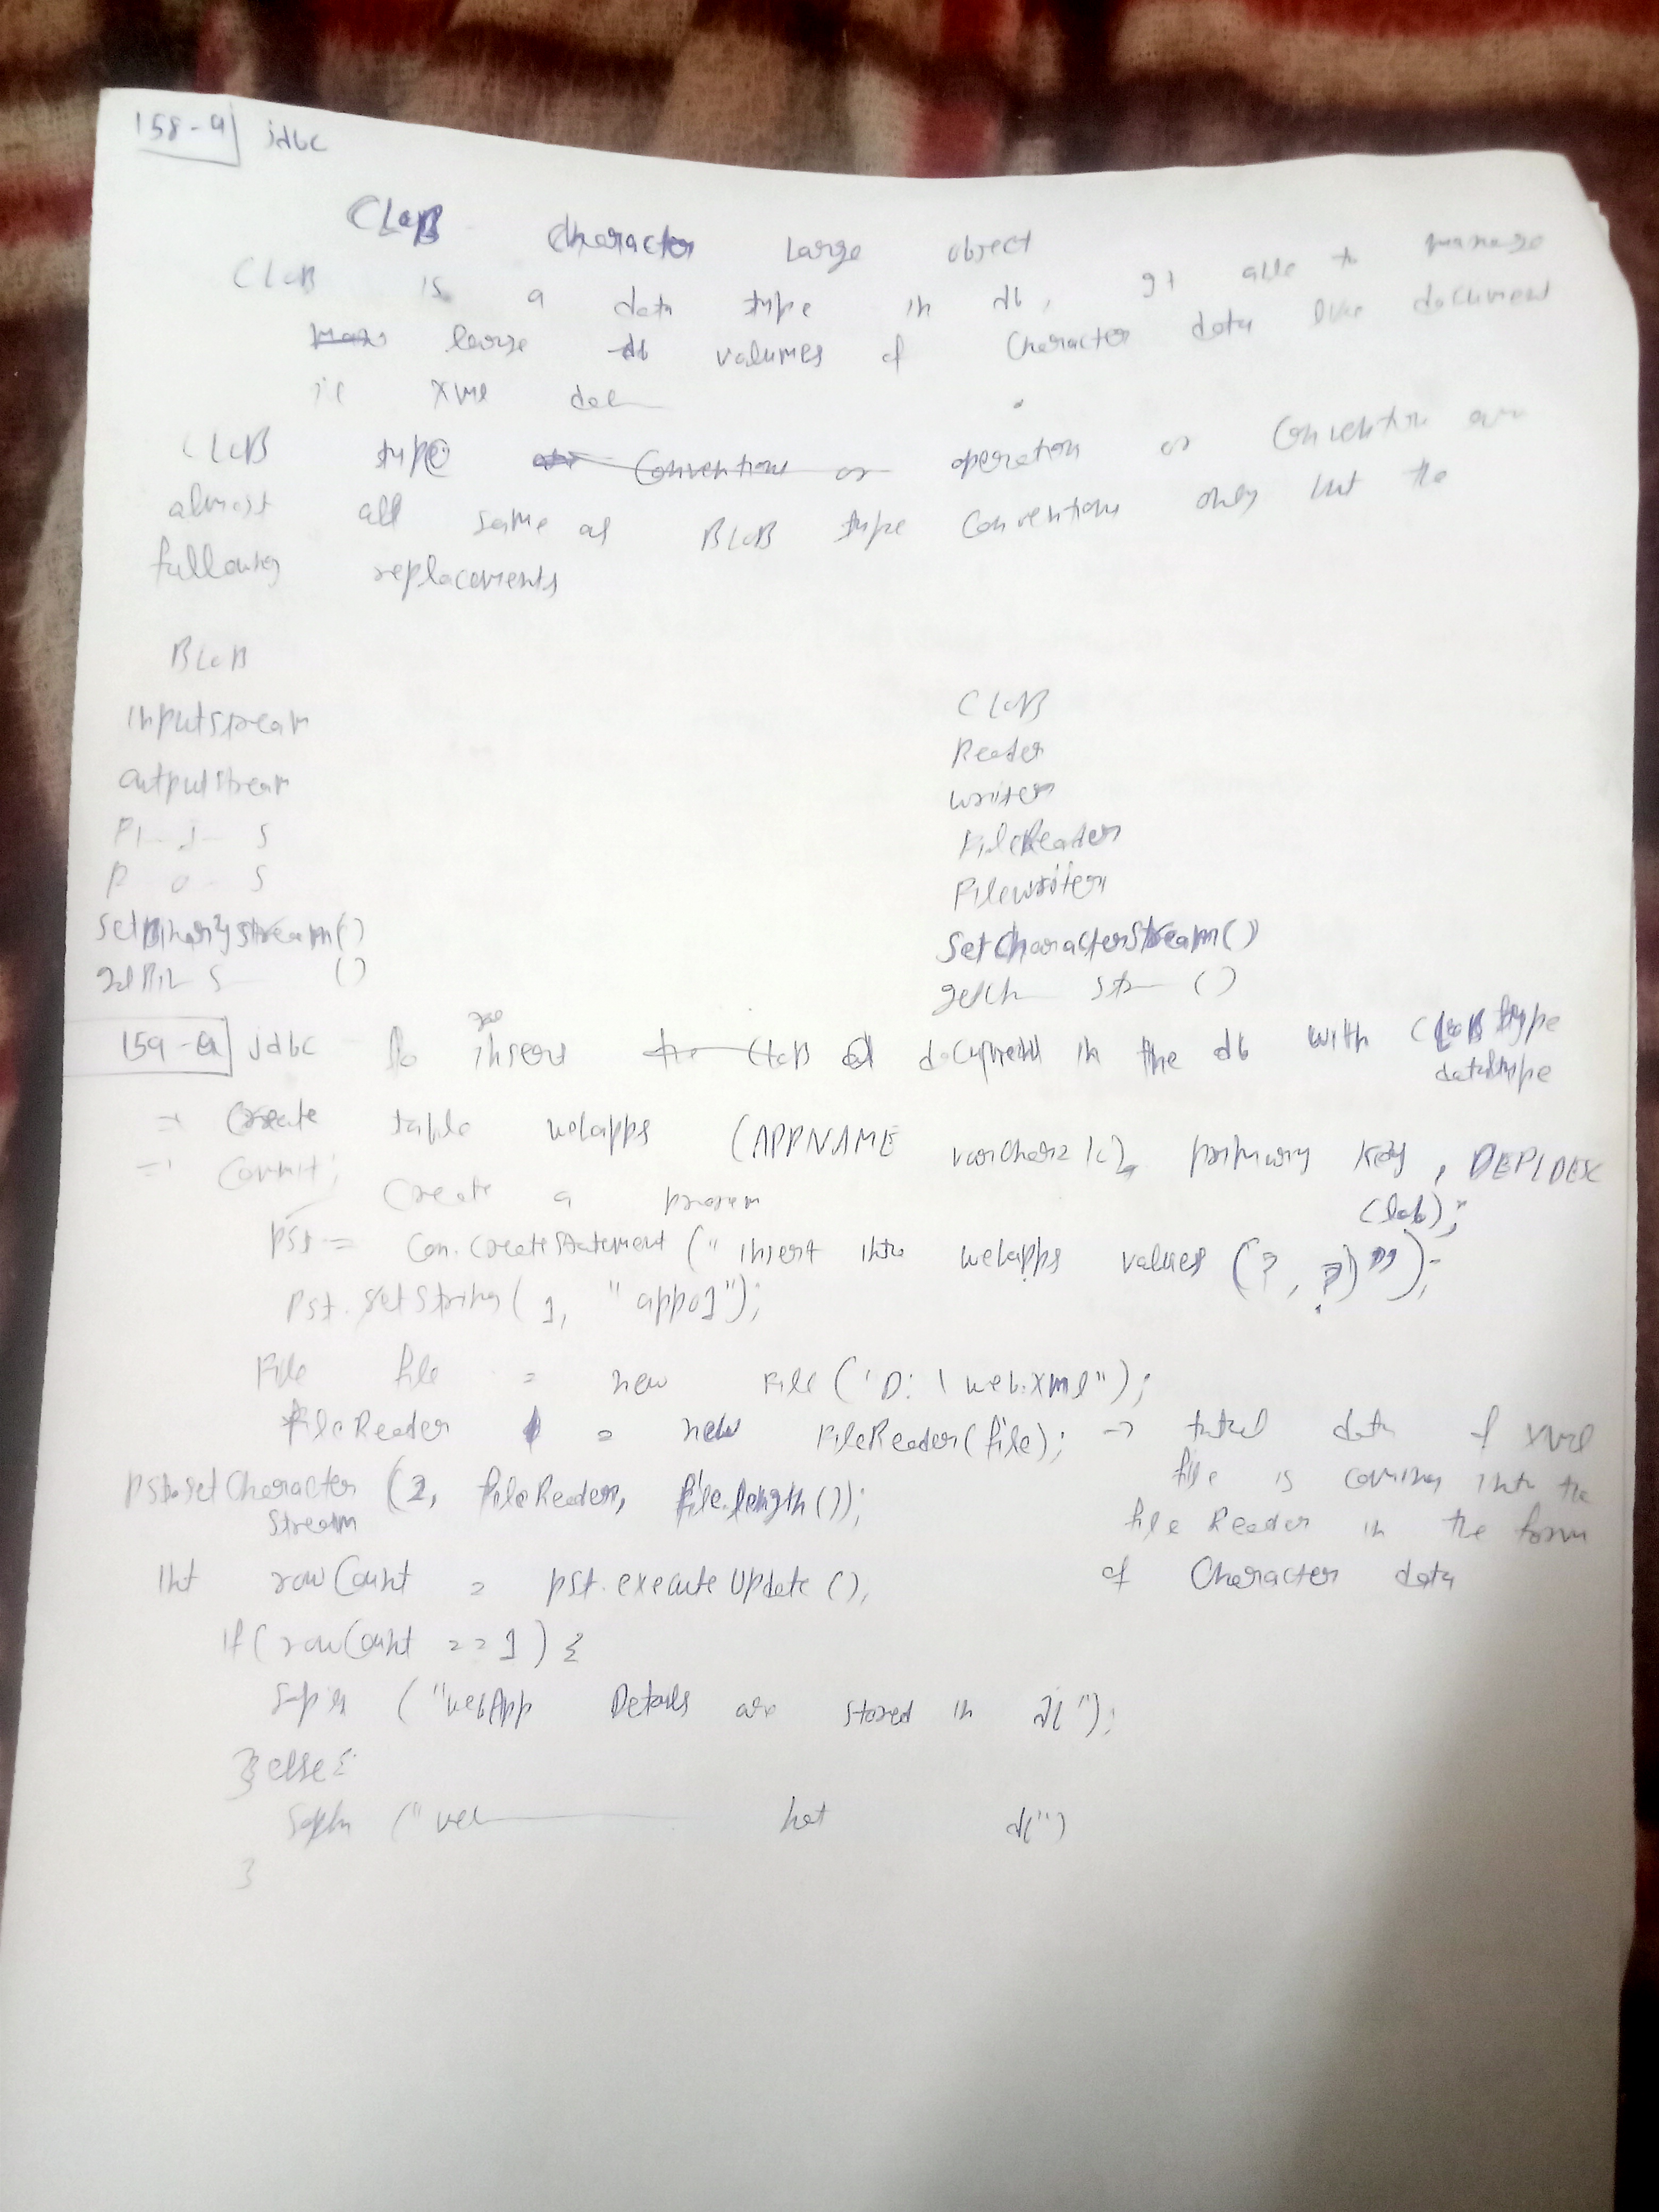 158-a] jdbc
CLOB Character Large object
CLOB is a data type in db, It able to manage
large volumes of Character data like document
ie xml doc
CLOB type operation or Convention are
almost all same as BLOB type Conventions only but the
following replacements
BLOB
CLOB
inputstream
Reader
outputstream
writer
FI - i - S
FileReader
F - o - S
Filewriter
setBinarystream()
SetCharacterStream()
getBin S ()
getCh str ()
159-a] jdbc To insert document in the db with CLOB type
datatype
→ Create table webapps (APPNAME varchar2 10), primary key, DEPLDESC
clob);
→ Commit;
Create a program
pst = Con.createStatement ("insert into webapps values (?, ?)");
pst.setString( 1, "app01");
File file = new File ('D: \ web.xml");
fileReader = new FileReader(file); → total data of xml
file is coming into the
file Reader in the form
of Character data
pst.setCharacter (2, fileReader, file.length());
Stream
int rowCount = pst.executeUpdate (),
if (rowCount == 1) {
Sopln ("webApp Details are stored in db");
} else {
Sopln ("web not db")
}